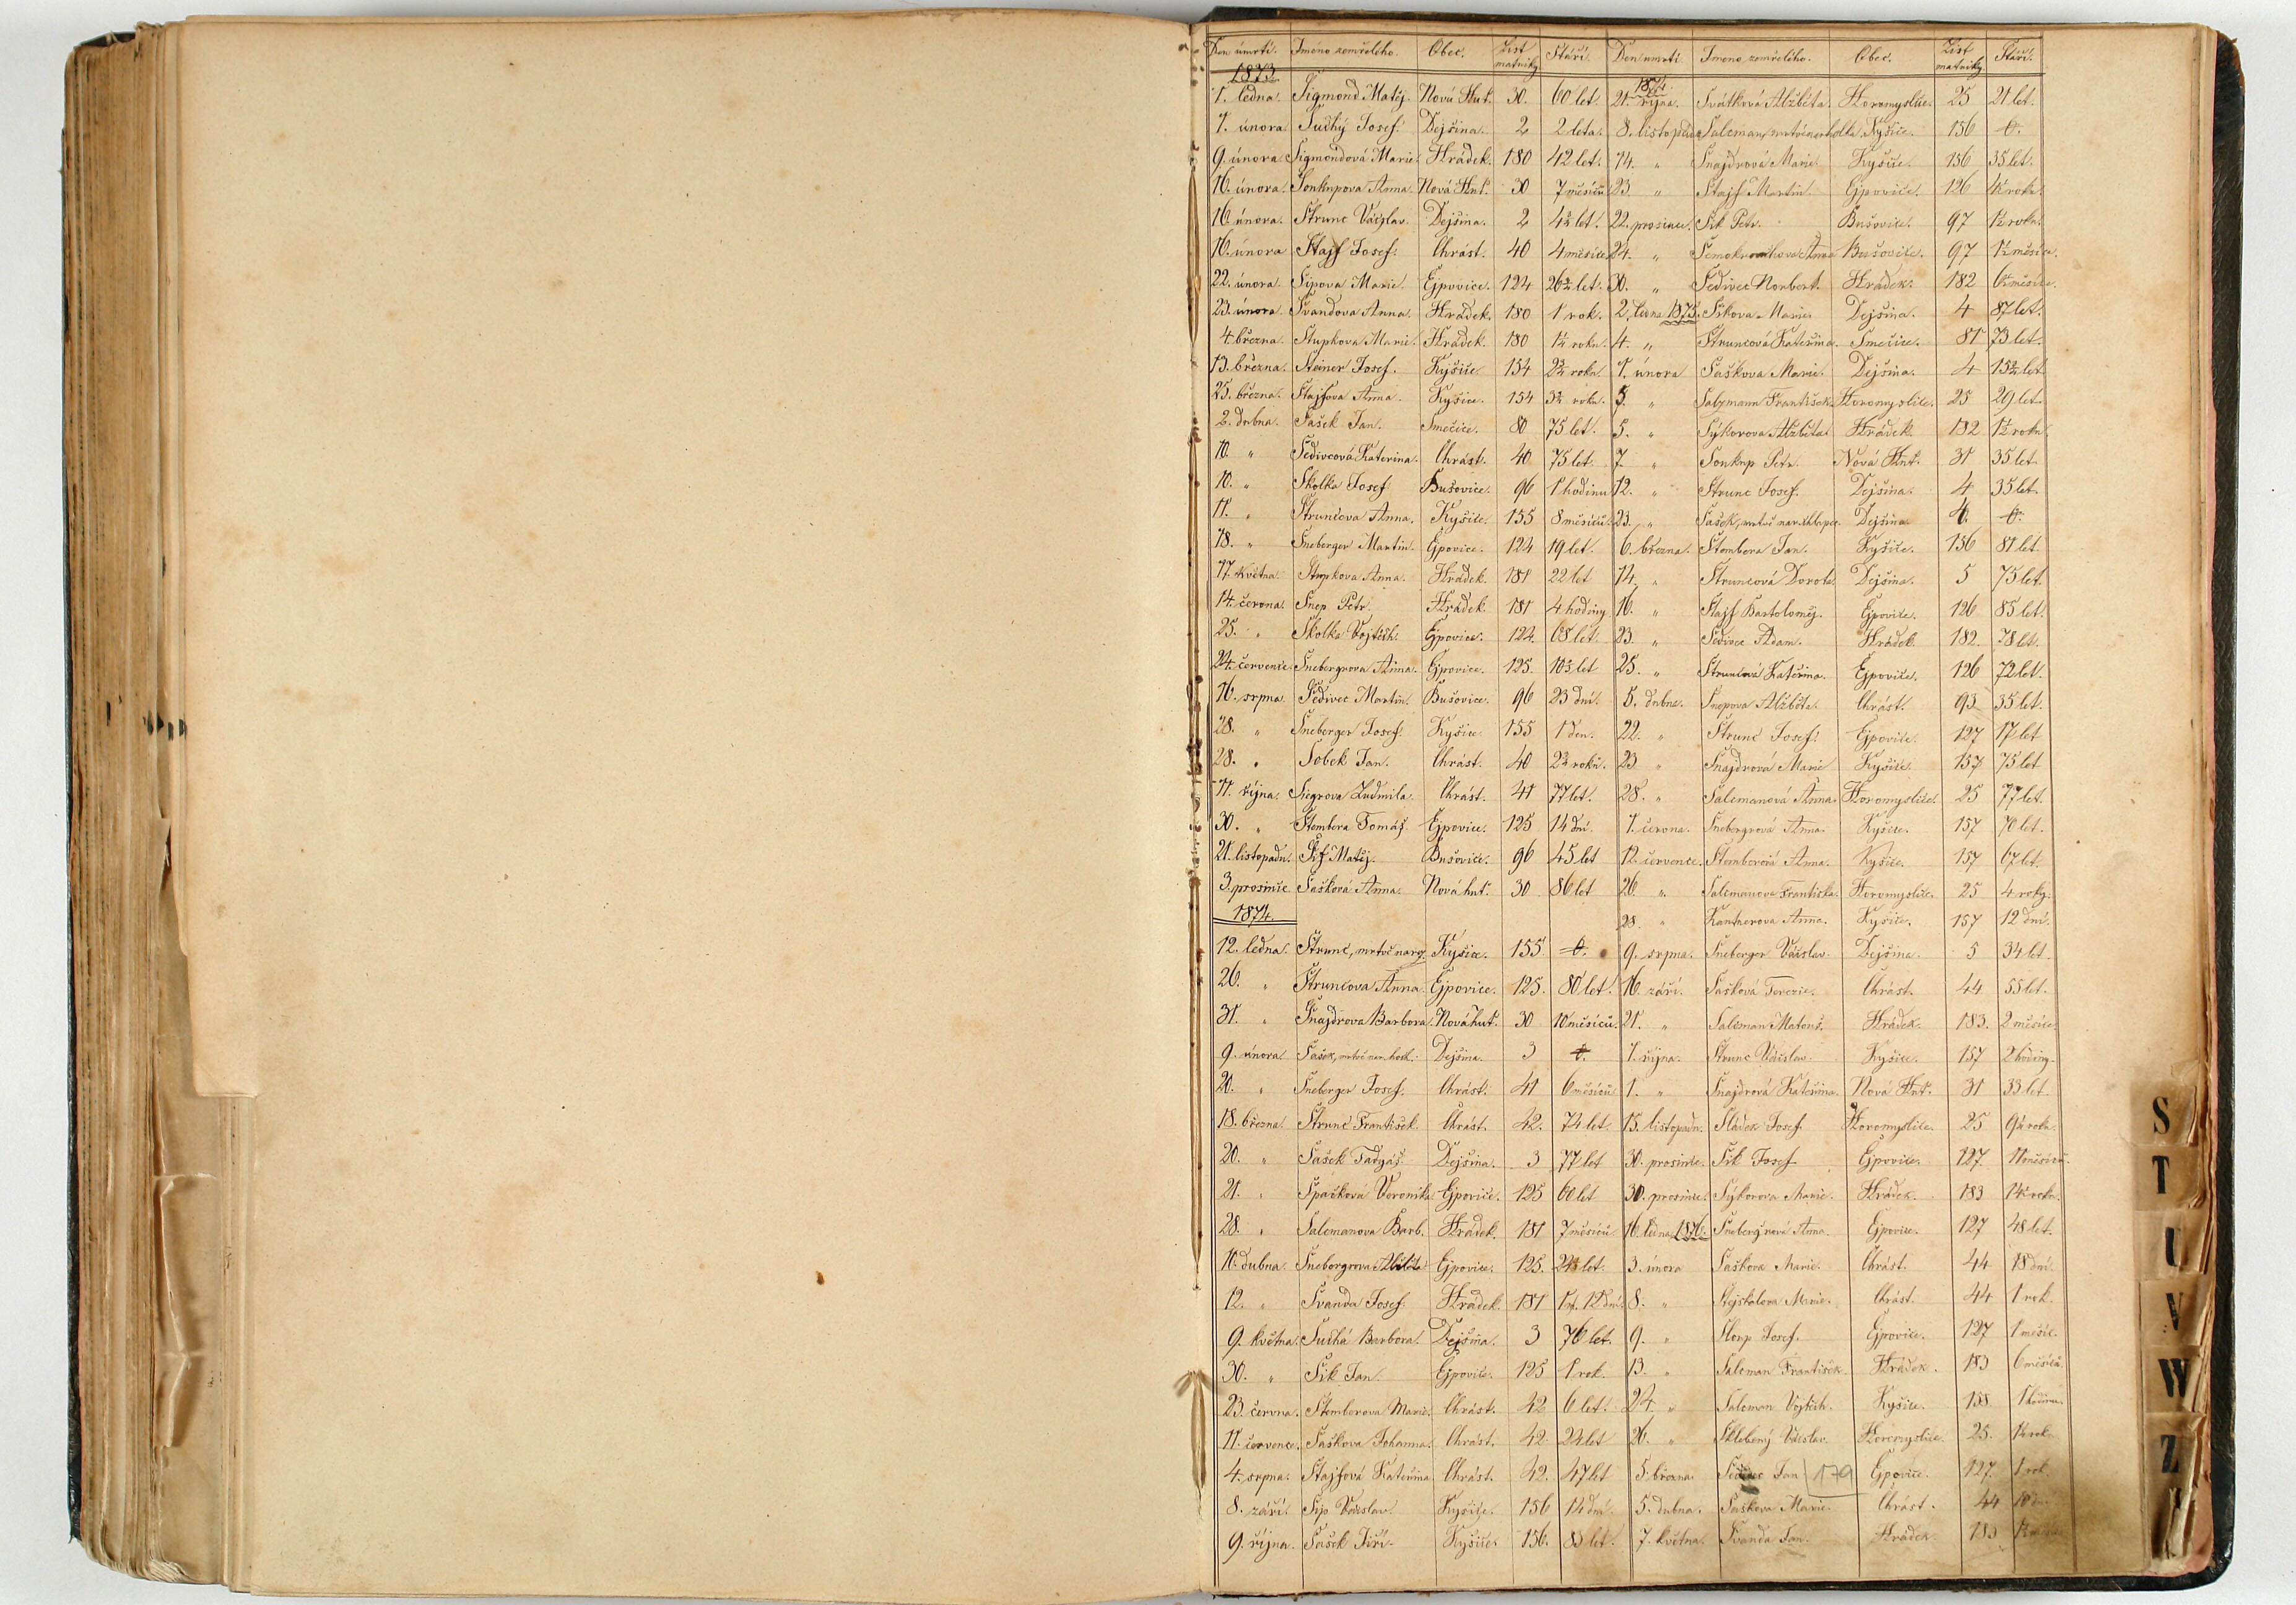 Den úmrtí. Jméno zemřelého. Obec. List matriky Stáří.
1873
1. ledna. Sigmond Matěj. Nová Huť. 30. 60 let.
7. února. Suchý Josef. Dejšina. 2 2 leta.
9. února. Sigmondová Marie. Hrádek. 180 42 let.
16. února. Šonknpova Anna. Nová Huť. 30 7 měsíců
16. února. Štrunc Václav. Dejšina. 2 4½ let.
16. února Štajf Josef. Chrást. 40 4 měsíce
22. února. Šipova Marie. Ejpovice. 124 26½ let.
23. února. Švandova Anna. Hrádek. 180 1 rok.
4. března. Stupkova Marie. Hrádek. 180 1½ roku.
13. března. Steiner Josef. Kyšice 154 2¾ roku.
25. března. Štajfova Anna. Kyšice. 154 3½ roku.
2. dubna. Sašek Jan. Smečice. 80 75 let.
10. " Šedivcová Katerina. Chrást. 40 75 let.
10. " Skolka Josef Bušovice. 96 1 hodinu
11. " Štruncova Anna. Kyšice. 155 8 měsíců.
18. " Šneberger Martin. Ejpovice. 124 19 let.
17. května. Stupkova Anna. Hrádek. 181 22 let
14. června. Šnep Petr. Hrádek 181 4 hodiny
25. " Skolka Vojtěch. Ejpovice. 124. 68 let.
24. července. Šnebergrova Anna. Ejpovice. 125. 10½ let
16. srpna. Šedivec Martin. Bušovice. 96 23 dní.
28. " Šneberger Josef. Kyšice 155 1 den.
28. " Sobek Jan. Chrást. 40 2½ roku.
11. října. Siegrova Ludmila. Chrást. 41 77 let.
30. " Štembera Tomáš. Ejpovice. 125 14 dní.
21. listopadu. Šif Matěj. Bušovice. 96 45 let
3. prosince Sašková Anna. Nová huť. 30 86 let
1874.
12. ledna. Štrunc, mrtvě naroz. Kyšice. 155 0.
26. " Štruncova Anna. Ejpovice. 125. 80 let.
31. " Šnajdrova Barbora. Nová huť. 30 10 měsíců.
9. února Sašek, mrtvě nar. hoch. Dejšina. 3 0.
20. " Šneberger Josef. Chrást. 41 6 měsíců
18. března. Štrunc František. Chrást. 42. 74 let.
20. " Sašek Tadyáš. Dejšina. 3 77 let
21. " Spačková Veronika Ejpovice. 125 60 let
28. " Salcmanova Barb. Hrádek. 181 7 měsíců
11. dubna. Šnebergrova Alžběta Ejpovice. 125. 23 let.
12. " Švanda Josef. Hrádek. 181 1 r. 12 dní.
9. května. Suchá Barbora. Dejšina. 3 76 let.
30. " Šik Jan. Ejpovice. 125 1 rok.
23. června. Štemberova Marie. Chrást. 42 6 let.
11. července. Saškova Johanna. Chrást. 42 24 let
4. srpna. Štajfová Kateřina. Chrást. 42. 47 let
8. září. Šip Václav. Kyšice. 156 14 dní.
9. října. Sašek Jiří. Kyšice. 156. 83 let.
Den úmrtí Jméno zemřelého. Obec. List matriky. Stáří.
1874
21. října. Svátková Alžběta. Horomyslice. 25 21 let.
8. listopadu Salcman, mrtvěnar. holka. Kyšice. 156 0.
14. " Šnajdrová Marie. Kyšice. 156 35 let.
23 " Štajf Martin. Ejpovice. 126 roku.
22. prosince. Šik Petr. Bušovice. 97 1½ roku.
24. " Anna Bušovice. 97 1½ měsíce.
30. " Šedivec Norbert. Hrádek. 182 6½ měsíce.
2. ledna 1875. Šikova Marie. Dejšina. 4 87 let.
4. " Štruncová Kateřina. Smečice. 81 73 let.
1. února Saškova Marie. Dejšina. 4 15½ let
3. " Salzmann František. Horomyslice. 25 29 let.
5. " Sýkorova Alžběta. Hrádek. 182 1½ roku
7. " Šonknp Petr. Nová Huť. 31 35 let.
12. " Štrunc Josef. Dejšina. 4 35 let.
23. " Sašek, mrtvě nar. chlapec. Dejšina. 4. 0.
6. března. Štembera Jan. Kyšice. 156 81 let.
14. " Štruncová Dorota Dejšina. 5 75 let.
16. " Štajf Bartoloměj. Ejpovice. 126 85 let.
23. " Šedivec Adam. Hrádek 182. 78 let.
25. " Štruncová Kateřina. Ejpovice. 126 72 let.
5. dubna. Šnepova Alžběta. Chrást. 93 35 let.
22. " Štrunc Josef. Ejpovice. 127 17 let
23 " Šnajdrová Marie Kyšice. 157 75 let
28. " Salcmanová Anna. Horomyslice. 25 77 let.
1. června. Šnebergrová Anna. Kyšice. 157 70 let.
12. července. Štemberová Anna. Kyšice. 157 67 let.
26. " Salcmanova Františka. Horomyslice. 25 4 roky.
28. " Kantnerova Anna. Kyšice. 157 12 dní.
9. srpna. Šneberger Václav. Dejšina. 5 34 let.
16. září. Sašková Terezie. Chrást. 44 55 let.
21. " Salcman Matouš. Hrádek. 183. 2 měsíce.
1. října. Štrunc Václav. Kyšice. 157 2 hodiny.
1. " Šnajdrová Kateřina. Nová Huť. 31 33 let.
15. listopadu. Sládek Josef Horomyslice. 25 roku.
30. prosince. Šik Josef Ejpovice. 127. 11 měsíců.
30. prosince. Sýkorova Marie. Hrádek. 183 roku.
16. ledna 1876. Šnebergrová Anna. Ejpovice. 127 48 let.
3. února Saškova Marie. Chrást. 44 18 dní.
8. " Stejskalova Marie. Chrást. 44 1 rok.
9. " Josef. Ejpovice. 127 1 měsíc.
13. " Salcman František. Hrádek. 183 6 měsíců.
24. " Salcman Vojtěch. Kyšice. 158 1 hodinu.
26. " Václav. Horomyslice. 25. 1½ rok.
5. března Jan 179 Ejpovice. 127. 1 rok.
5. dubna. Saškova Marie. Chrást. 44 18 dní
7. května. Švanda Jan. Hrádek. 183
S
T
U
V
W
Z